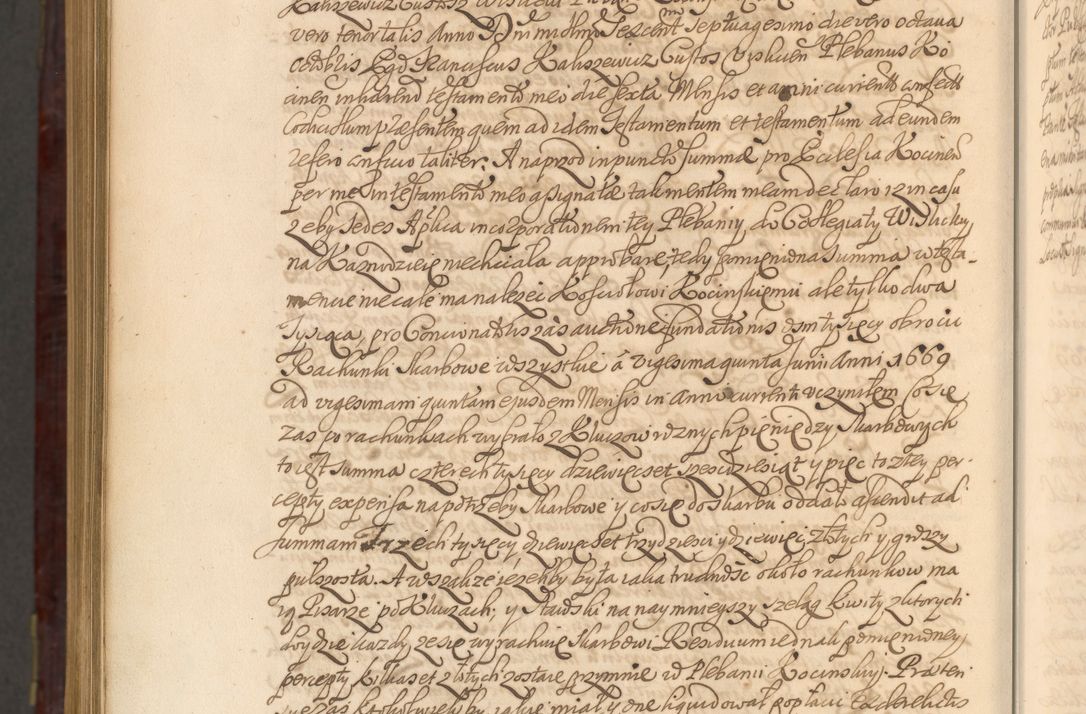 vero tenor talis Anno Dni millmo Sexcentmo Septuagesimo die vero octava
octobris Ego Franciscus Kaliszewicz Custos Vislicien Plebanus Ko
cinen inhærendo testamento meo die sexta Mensis et anni currentis confecto
Codicillum præsentem quem ad idem Testamentum et testamentum ad eundem
refero conficio taliter. A naprzod in puncto summæ pro Ecclesia Kocinen
per me in testamento meo assignatæ tak mentem meam declaro iz in casu
zeby Sedes Aplica incorporationem tey Plebaniy do Collegiaty Wislicky
na Kaznodzieię niechciała approbare, tedy pomieniona Summa w testa-
mencie niecale ma nalezec Kosciołowi Kocinskiemu ale tylko dwa
Tysiąca, pro Concionatoris zas auctione fundationis osm tysięcy obrocic
Rachunki Skarbowe wszystkie â vigesima quinta Junii Anni 1669
ad vigesimam quintam ejusdem Mensis in Anno currenti vczyniłem Co się
zas po rachunkach wybrało z Kluczow roznych pieniędzy Skarbowych
to iest Summa czterech tysięcy dziewięcset szescdziesiąt y pięc to złey per-
cepty expensa na potrzeby Skarbowe y co się do Skarbu oddało ascendit ad
summam trzech tysięcy dziewięcset trzydziesci y dziewięc złotych y groszy
pułszosta. A wszakze iezeliby była iaka trudnosc około rachunkow ma
ią Pisarze po Kluczach; y Stawski na naymnieyszy szeląg kwity z ktorych
kozdy ze się wyrachuię Skarbowi Residuum iednak pomienioney
percepty kilkaset złotych zostaie przymnie w Plebanii Kocinskiey.